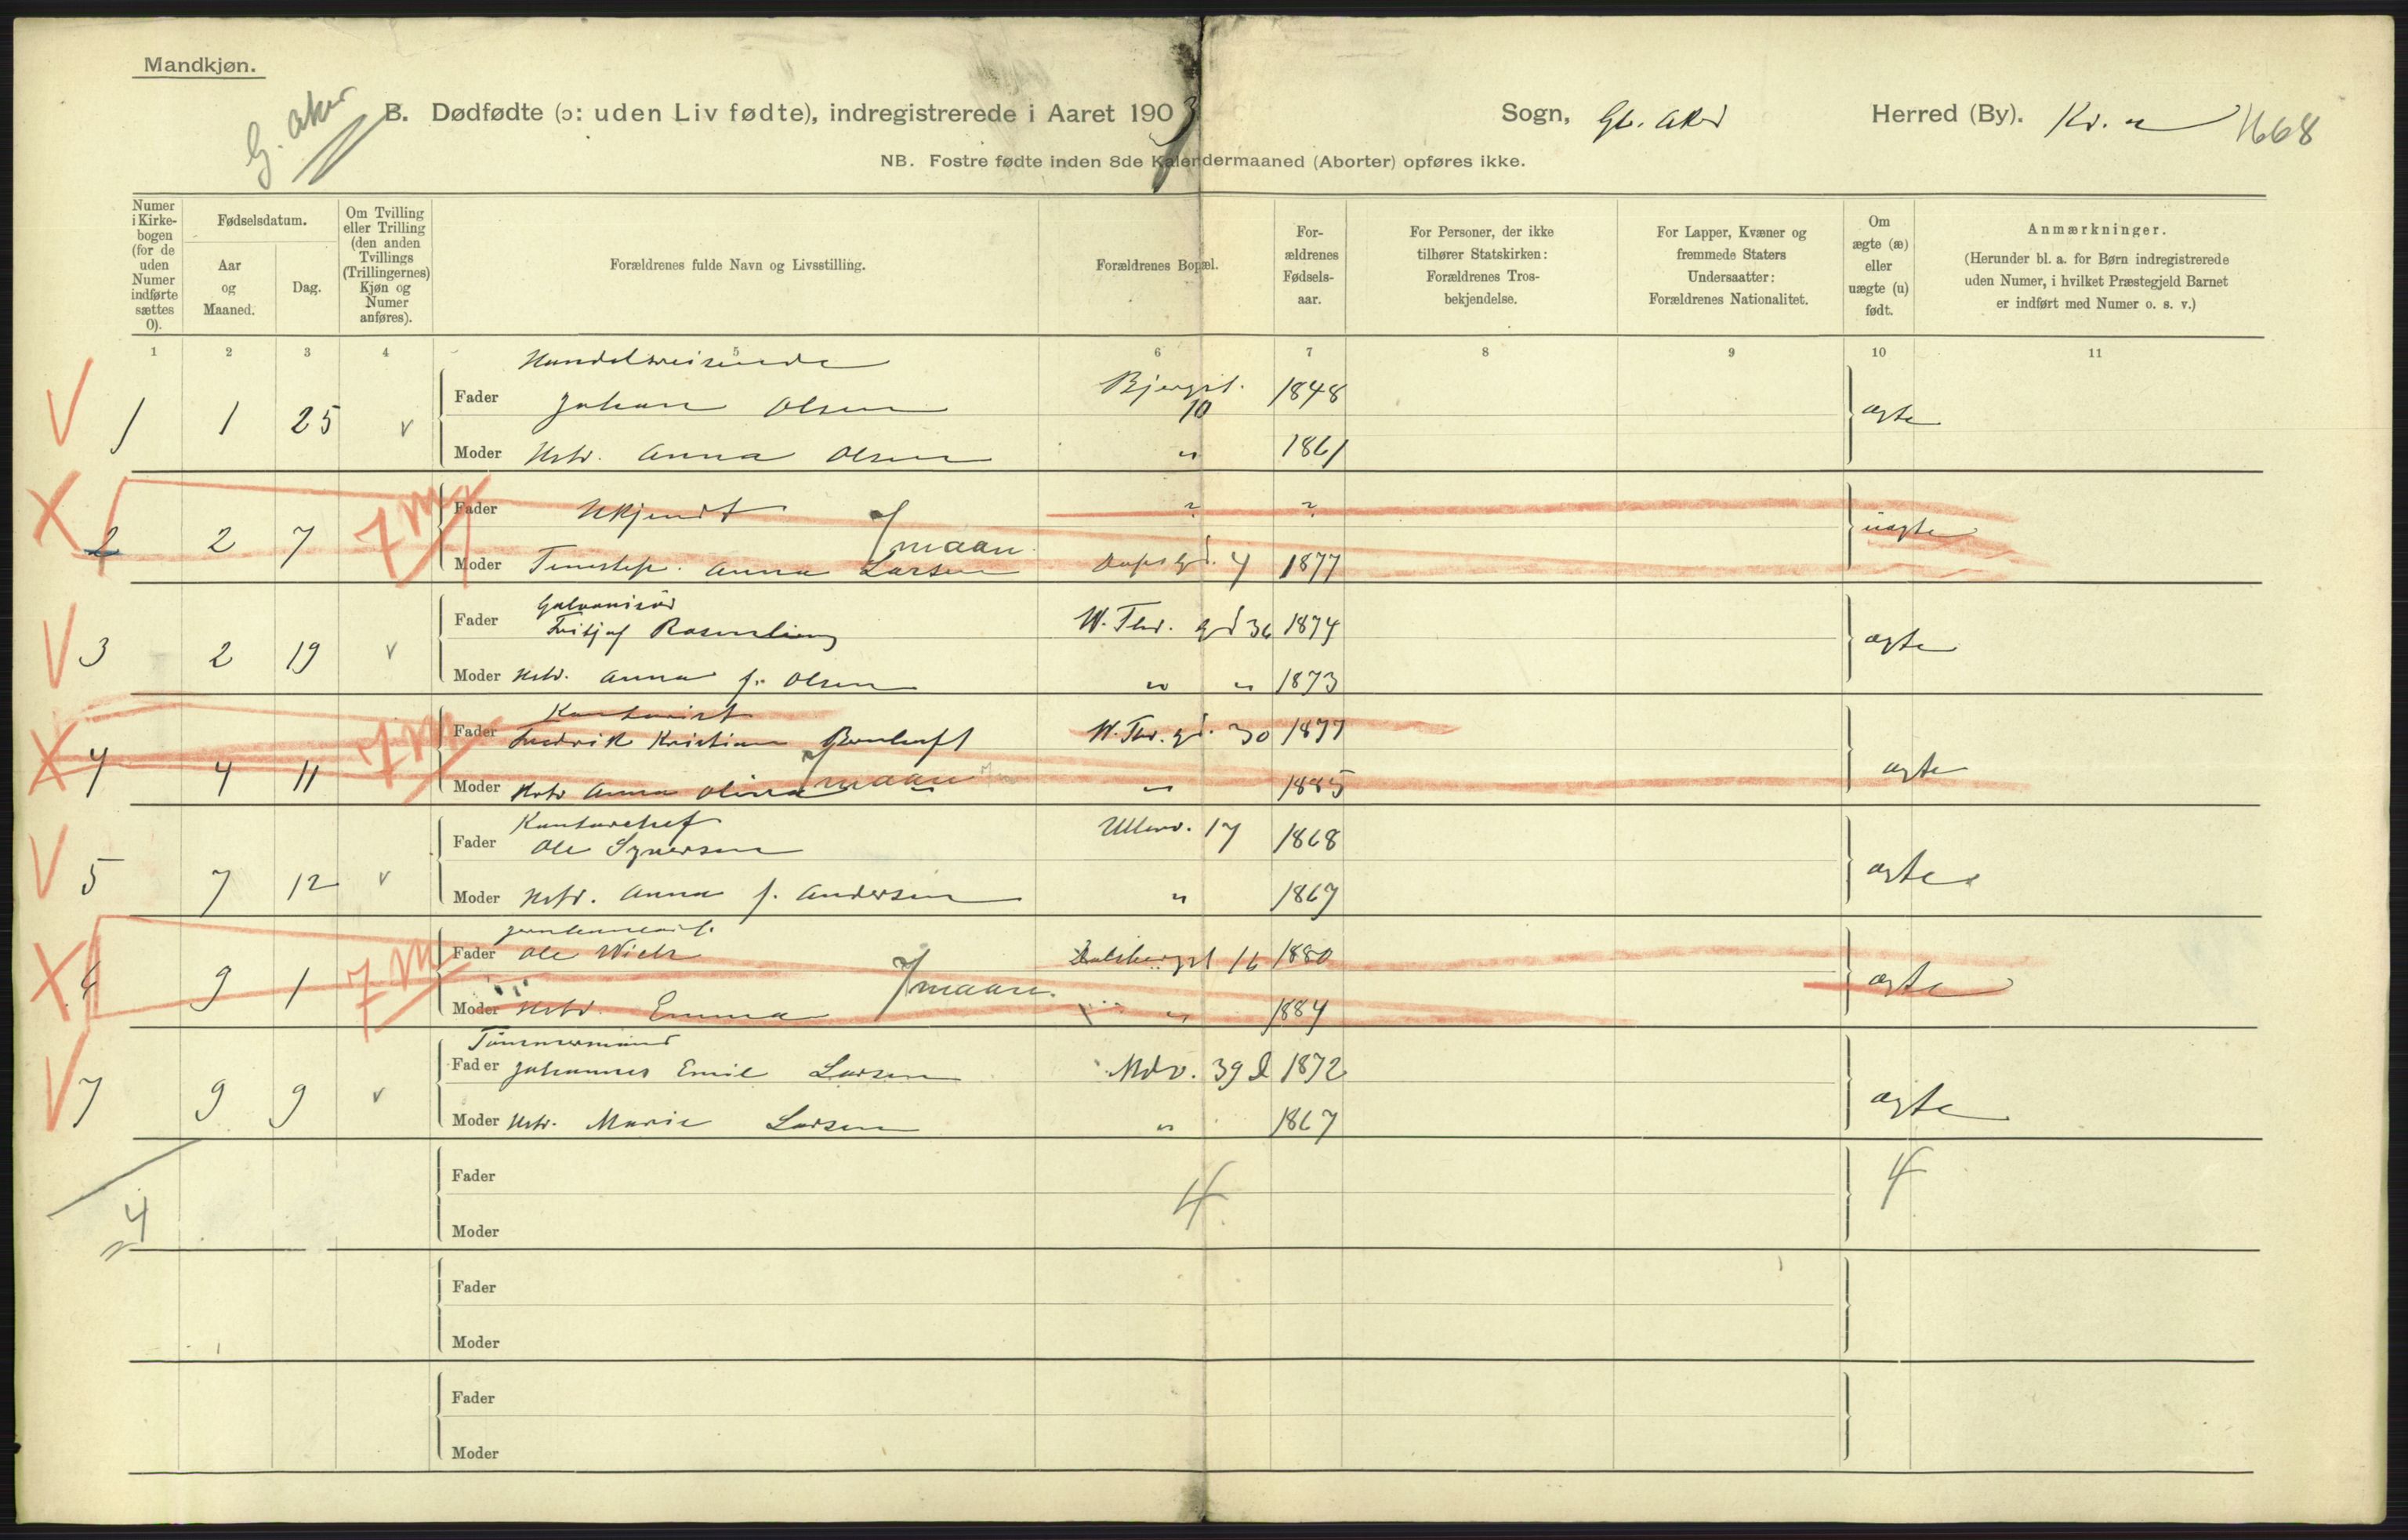 Mandkjøn.
G. Aker
B. Dødfødte (ɔ: uden Liv fødte), indregistrerede i Aaret 1903
Sogn, Gl. Aker
Herred (By). Kr. a
1668
NB. Fostre fødte inden 8de Kalendermaaned (Aborter) opføres ikke.
Numer i Kirke- bogen (for de uden Numer indførte sættes 0).
Fødselsdatum.
Aar og Maaned.
Dag.
Om Tvilling eller Trilling (den anden Tvillings (Trillingernes) Kjøn og Numer anføres).
Forældrenes fulde Navn og Livsstilling.
Forældrenes Bopæl.
For- ældrenes Fødsels- aar.
For Personer, der ikke tilhører Statskirken: Forældrenes Tros- bekjendelse.
For Lapper, Kvæner og fremmede Staters Undersaatter: Forældrenes Nationalitet.
Om ægte (æ) eller uægte (u) født.
Anmærkninger.
(Herunder bl. a. for Børn indregistrerede uden Numer, i hvilket Præstegjeld Barnet er indført med Numer o. s. v.)
1 2 3 4 5 6 7 8 9 10 11
Handelsreisende
V 1 1 25 v Fader Johan Olsen Bjergst. 10 1848 ægte
Moder Hstr. Anna Olsen " 1861
X 2 2 7 7 M Fader Ukjendt ? ? uægte
7 maan
Moder Tjenestep. Anna Larsen 4 1877
Galvanisør
V 3 2 19 v Fader Fritjof W. Thr. gd 36 1874 ægte
Moder Hstr. Anna f. Olsen " " 1873
Kontorist
X 4 4 11 7 M Fader Fredrik Kristian W. Thr. gd. 30 1877 ægte
7 maan
Moder Hstr Anna Olina " 1885
Kontorchef
V 5 7 12 v Fader Ole Syversen Ullev. 17 1868 ægte
Moder Hstr. Anna f. Andersen " 1867
X 6 9 1 7 M Fader Ole Wiels 16 1880 ægte
7 maan.
Moder Hstr. Emma " 1884
Tømmermand
V 7 9 9 v Fader Johannes Emil Larsen Mdv. 39 d 1872 ægte
Moder Hstr. Marie Larsen " 1867
Fader
4 4 4
Moder
Fader
Moder
Fader
Moder